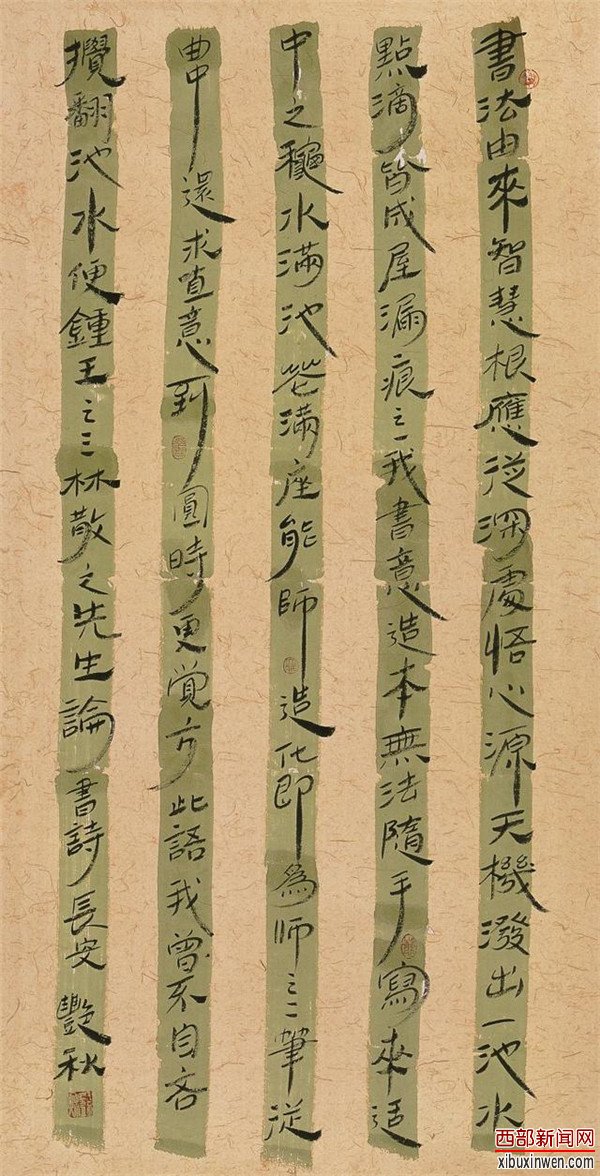 書法由來智慧根應從深處悟心源天機潑出一池水
點滴皆成屋漏痕之一我書意造本無法隨手寫來適
中之穐水滿池花滿座能師造化即為師之二筆從
曲中還求直意到圓時更覺方此語我曾不自吝
攪翻池水便鍾王之三林散之先生論書詩長安艷秋
西部新闻网
xibuxinwen.com